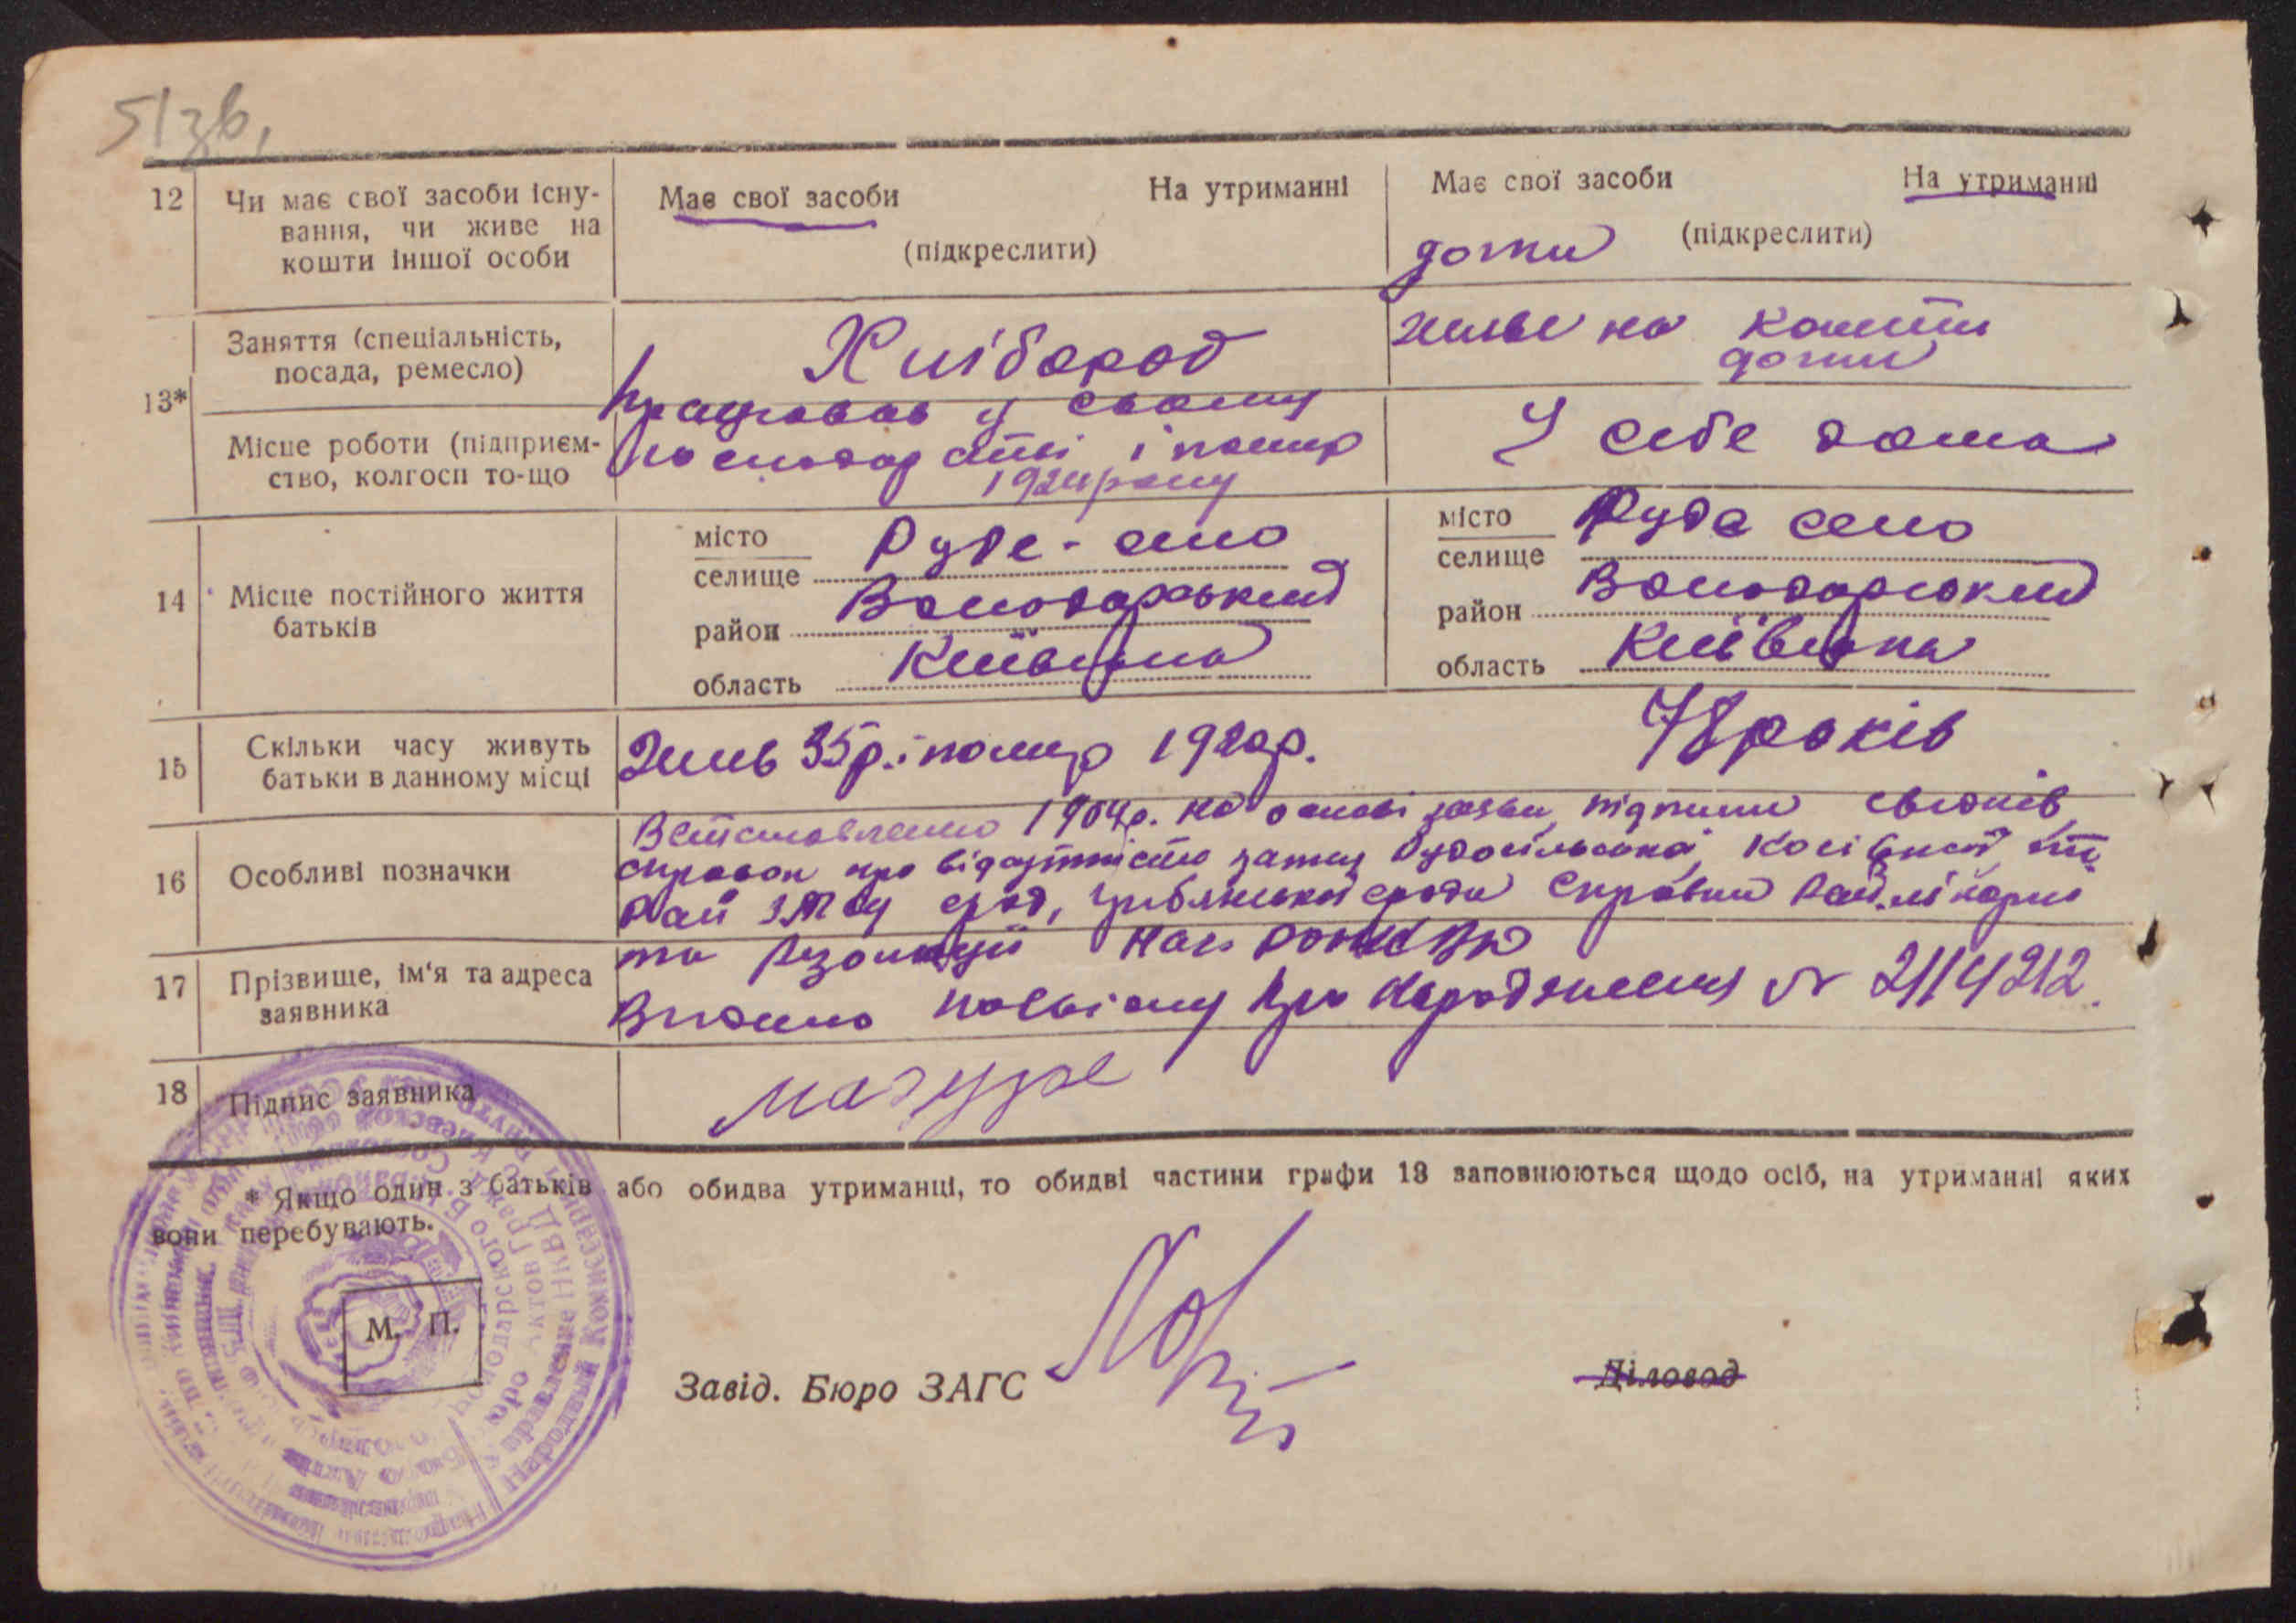 51зв.
12 Чи має свої засоби існу-
вання, чи живе на
кошти іншої особи
Має свої засоби На утриманні
(підкреслити)
Має свої засоби На утриманні
(підкреслити)
дочки
13* Заняття (спеціальність,
посада, ремесло)
Хлібороб
живе на кошти
дочки
Місце роботи (підприєм-
ство, колгосп то-що
Працював у своему
господарстві і помер
192 року
У себе дома
14 Місце постійного життя
батьків
місто
селище Руде-село
район Володарський
область Київщина
місто
селище Руде село
район Володарський
область Київщина
15 Скільки часу живуть
батьки в данному місці
Жив 35 р. і помер 1920р.
78 років
16 Особливі позначки
Встановлено 1904р. на основі заяви, підписки свідків,
справок про відсутність запису Рудосільської,
Рай ЗАГСу с/рад, с/ради справки Рай.лікарні
та Резолюції Нач.
17 Прізвище, ім'я та адреса
заявника
Видано посвідку про народження № 2114212.
18 Підпис заявника
Мазур
* Якщо один з батьків або обидва утриманці, то обидві частини графи 13 заповнюються щодо осіб, на утриманні яких
вони перебувають.
М. П.
Завід. Бюро ЗАГС
Діловод